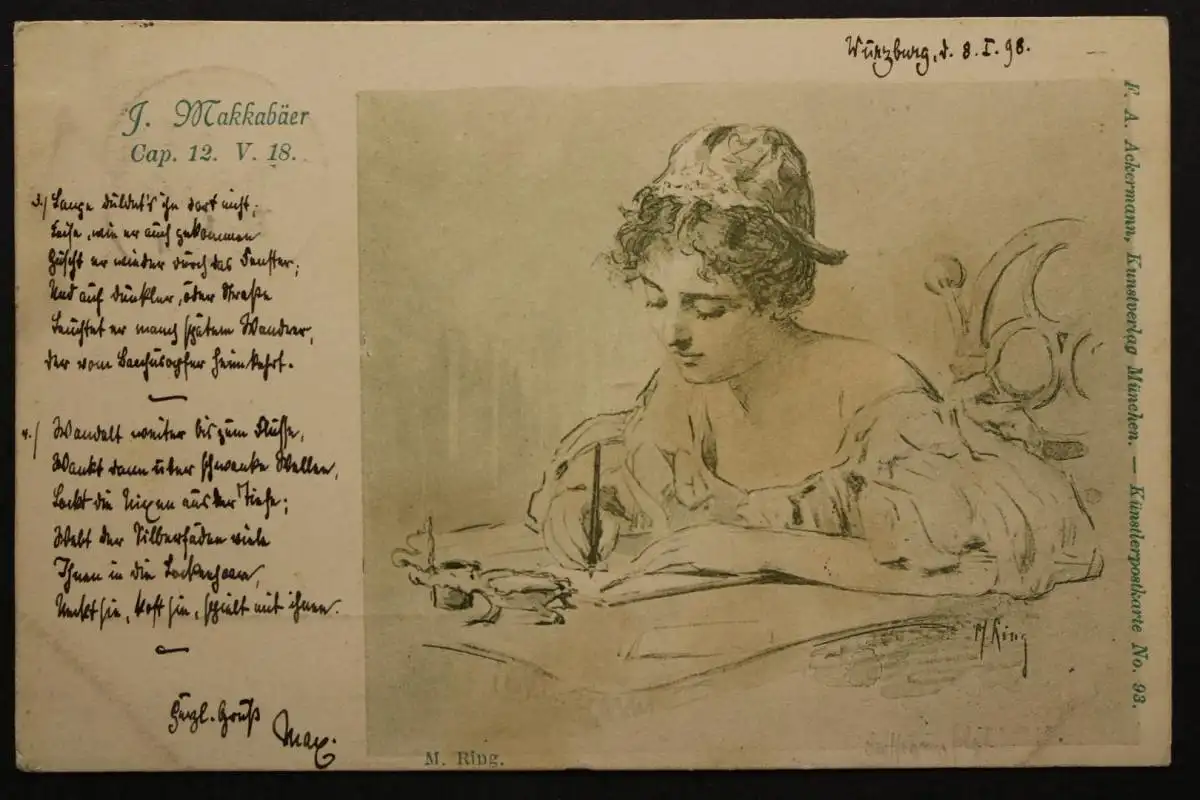 Würzburg, d. 8. I. 98.
J. Makkabäer
Cap. 12. V. 18.
3./ Lange duldet's ihn dort nicht;
Leise, wie er auch gekommen
Huscht er wieder durch das Fenster;
Und auf dunkler, öder Straße
Leuchtet er manch spätem Wandrer,
Der vom Bacchusopfer heimkehrt.
4./ Wandelt weiter bis zum Flusse,
Wankt dann über schwanke Wellen,
Lockt die Nixen aus der Tiefe;
Webt der Silberfäden viele
Ihnen in die Lockenhaare,
Neckt sie, kost sie, spielt mit ihnen.
Herzl. Gruß
Max.
M Ring
M. Ring.
F. A. Ackermann, Kunstverlag München. — Künstlerpostkarte No. 93.